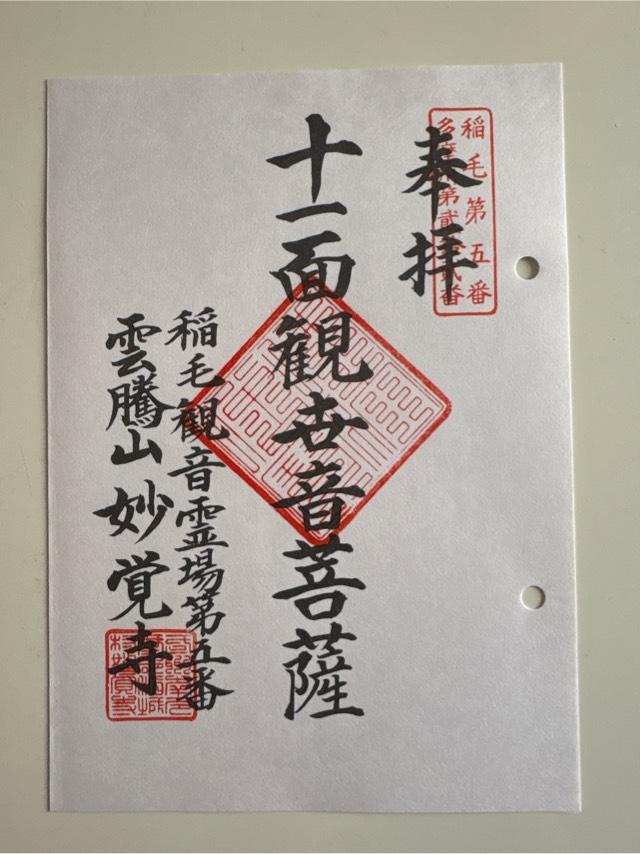 奉拝
稲毛第五番
十一面観世音菩薩
稲毛観音霊場第五番
雲騰山妙覚寺